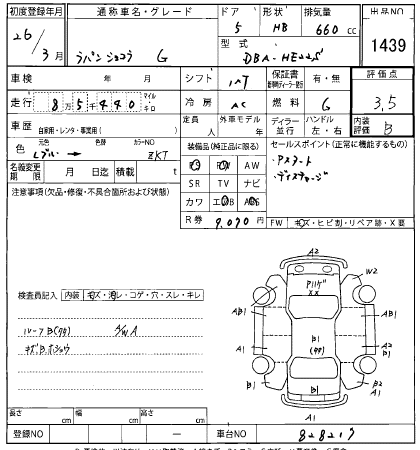 初度登録年月 通称車名・グレード ドア 形状 排気量 出品NO
26年 3月 ラパン ショコラ G 5 HB 660 cc 1439
型式 DBA-HE22S
車検 年 月 シフト IAT 保証書 有・無 評価点
走行 8万5千440 マイル キロ 冷房 AC 燃料 G 3,5
車歴 自家用・レンタ・事業用( ) 定員 人 外車モデル 年 ディーラー 並行 ハンドル 左・右 内装評価 B
色 元色 色替 カラーNO
Lブルー → ZKT
装備品(純正品に限る) セールスポイント(正常に機能するもの)
PS PW AW Pスタート
名義変更期限 月 日迄 積載 t SR TV ナビ ディスチャージ
注意事項(欠品・修復・不具合箇所および状態) カワ エアB ABS
R券 9,070 円 FW キズ・ヒビ割・リペア跡・X要
検査員記入 内装 キズ・汚レ・コゲ・穴・スレ・キレ
ルーフB(外) S/W A
キズ.B.ホショウ
A2
W2
Pハゲ
XX
AB1
AB1
B1
(外)
A1
A1
B1
B1
B2
A1
A1
長さ cm 幅 cm 高さ cm
登録NO ー 車台NO 828217